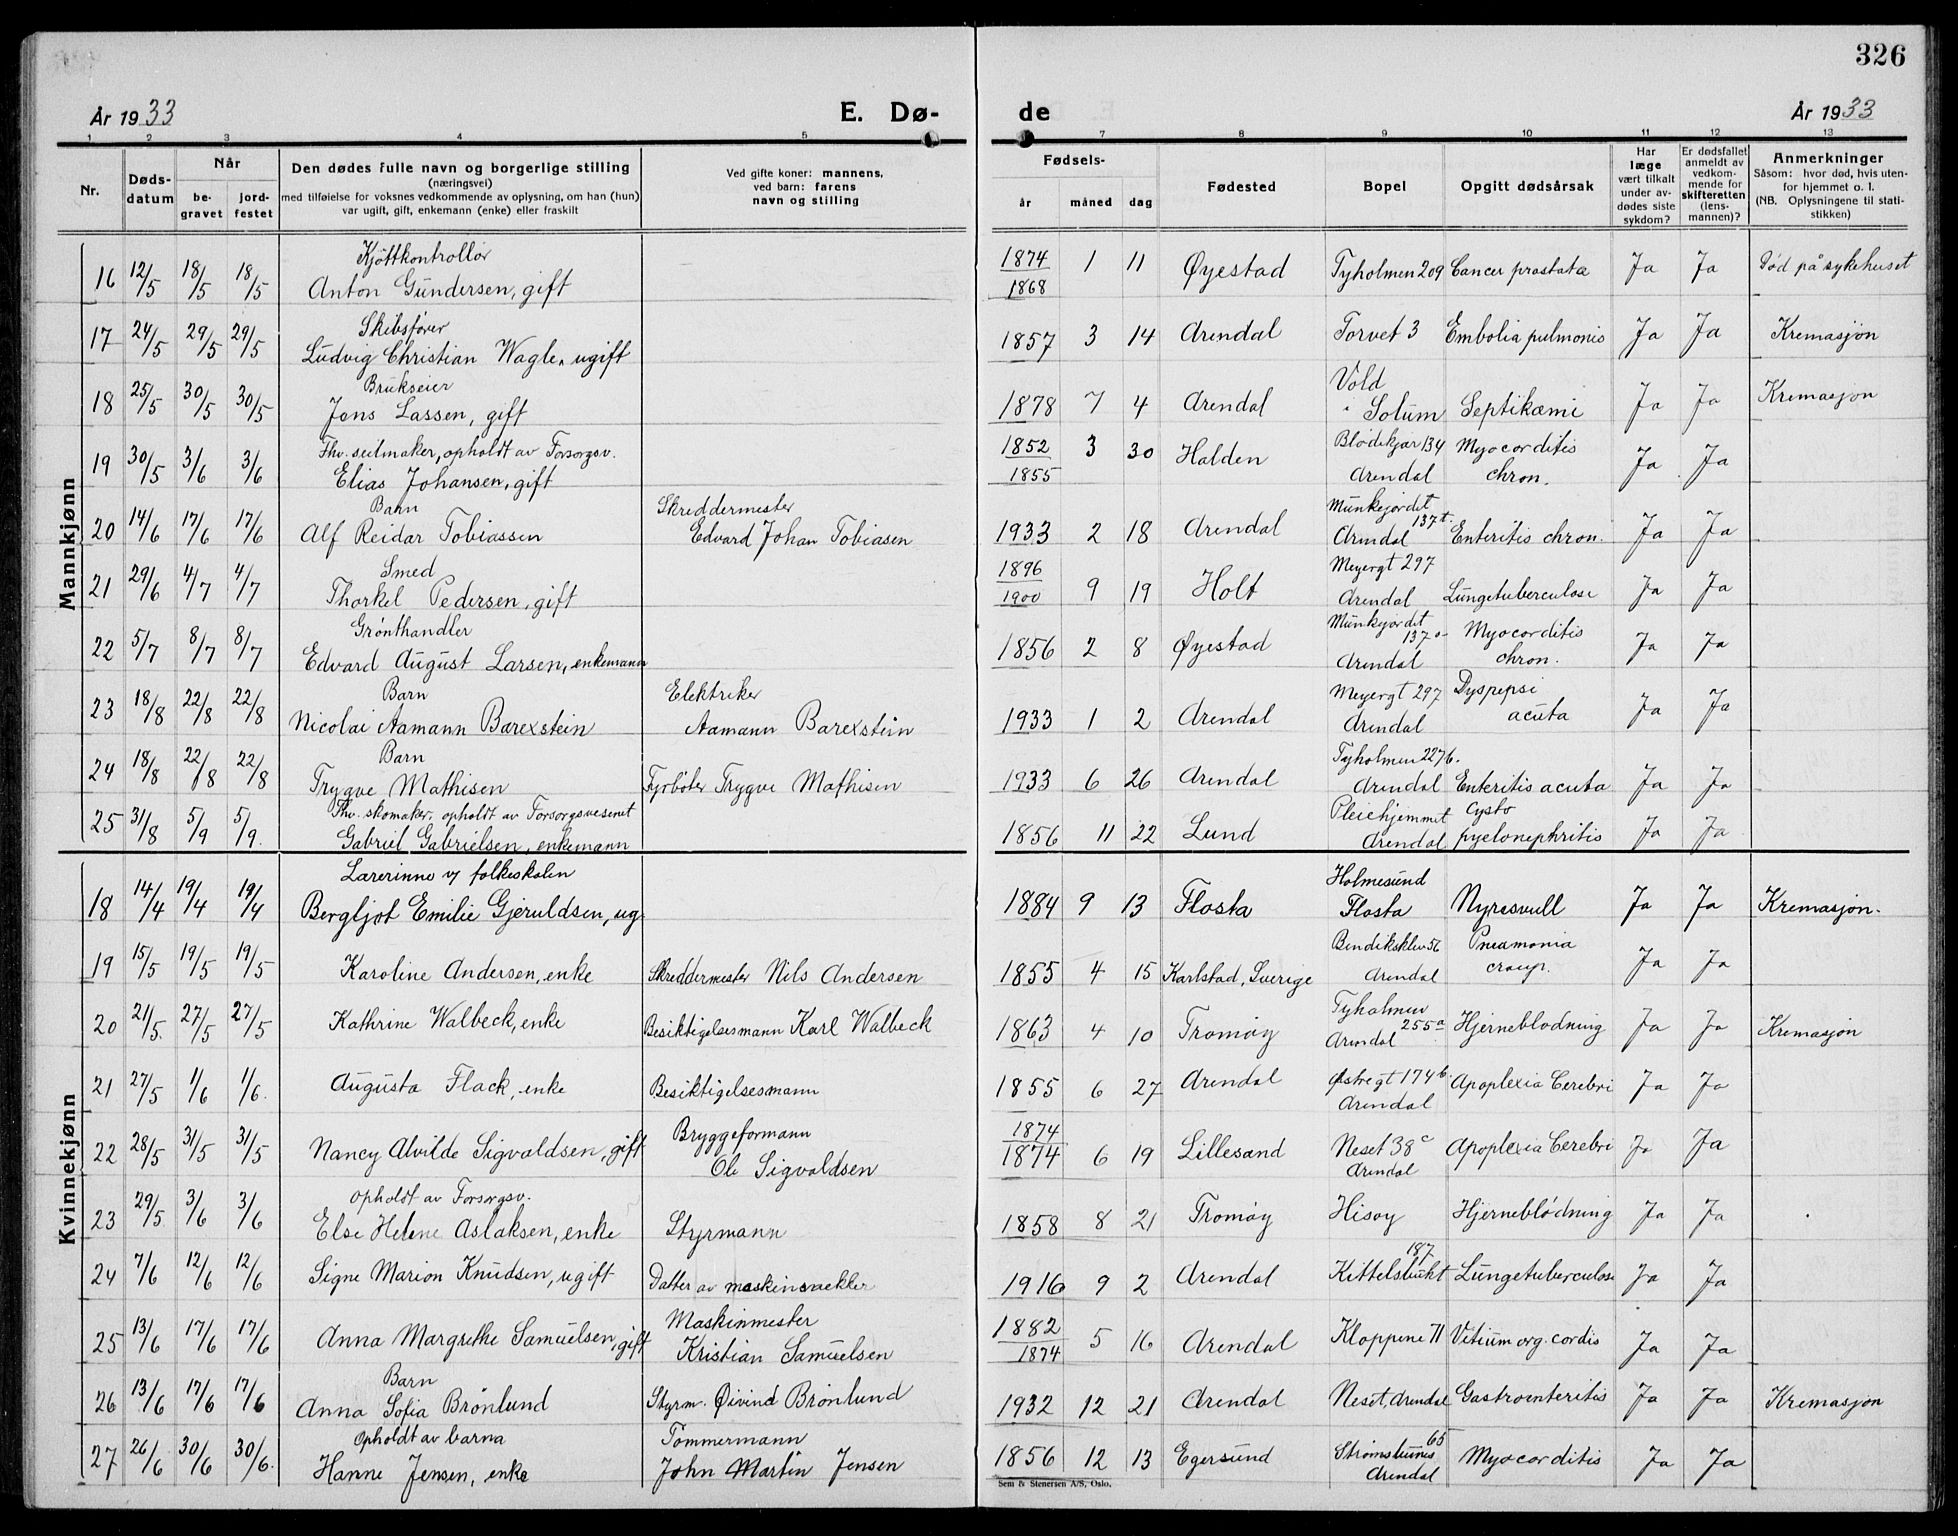 326
År 1933 E. Dø- de År 1933
1 2 3 4 5 7 8 9 10 11 12 13
Nr.
Døds-
datum
Når
be-
gravet
jord-
festet
Den dødes fulle navn og borgerlige stilling
(næringsvei)
med tilføielse for voksnes vedkommende av oplysning, om han (hun)
var ugift, gift, enkemann (enke) eller fraskilt
Ved gifte koner: mannens,
ved barn: farens
navn og stilling
Fødsels-
år måned dag
Fødested
Bopel
Opgitt dødsårsak
Har
læge
vært tilkalt
under av-
dødes siste
sykdom?
Er dødsfallet
anmeldt av
vedkom-
mende for
skifteretten
(lens-
mannen)?
Anmerkninger
Såsom: hvor død, hvis uten-
for hjemmet o. l.
(NB. Oplysningene til stati-
stikken)
Mannkjønn
Kjøttkontrollør
16 12/5 18/5 18/5 Anton Gundersen, gift 1874 1868 1 11 Øyestad Tyholmen 209 Cancer prostata Ja Ja Død på sykehuset
Skibsfører
17 24/5 29/5 29/5 Ludvig Christian Wagle, ugift 1857 3 14 Arendal Torvet 3 Embolia pulmonis Ja Ja Kremasjon
Brukseier Vold
18 25/5 30/5 30/5 Jens Lassen, gift 1878 7 4 Arendal i Solum Septikæmi Ja Ja Kremasjon
Fhv. seilmaker, opholdt av Forsorgsv. 1852 Blødekjær 134 Myocorditis
19 30/5 3/6 3/6 Elias Johansen, gift 1855 3 30 Halden Arendal chron. Ja Ja
Barn Skreddermester Munkejordet 137
20 14/6 17/6 17/6 Alf Reidar Tobiassen Edvard Johan Tobiasen 1933 2 18 Arendal Arendal Enteritis chron. Ja Ja
Smed 1896 Meyergt 297
21 29/6 4/7 4/7 Thorkel Pedersen, gift 1900 9 19 Holt Arendal Lungetuberculose Ja Ja
Grønthandler Munkejordet 137 Myocorditis
22 5/7 8/7 8/7 Edvard August Larsen, enkemann 1856 2 8 Øyestad Arendal chron. Ja Ja
Barn Elektriker Meyergt 297 Dyspepsi
23 18/8 22/8 22/8 Nicolai Aamann Barexstein Aamann Barexstein 1933 1 2 Arendal Arendal acuta Ja Ja
Barn Tyholmen 227 b.
24 18/8 22/8 22/8 Trygve Mathisen Fyrbøter Trygve Mathisen 1933 6 26 Arendal Arendal Enteritis acuta Ja Ja
Fhv. skomaker, opholdt av Forsorgsvesenet Pleiehjemmet Cysto
25 31/8 5/9 5/9. Gabriel Gabrielsen, enkemann 1856 11 22 Lund Arendal pyelonephritis Ja Ja
Kvinnekjønn
Lærerinne v/ folkeskolen Holmesund
18 14/4 19/4 19/4 Bergljot Emilie Gjeruldsen, ug. 1884 9 13 Flosta Flosta Nyresvull Ja Ja Kremasjon.
Bendiksklev 56 Pneamonia
19 15/5 19/5 19/5 Karoline Andersen, enke Skreddermester Nils Andersen 1855 4 15 Karlstad, Sverige Arendal croup. Ja Ja
Tyholmen 255a
20 21/5. 27/5 27/5 Kathrine Walbeck, enke Besiktigelsesmann Karl Walbeck 1863 4 10 Tromøy Arendal Hjerneblodning Ja Ja Kremasjon
21 27/5 1/6 1/6. Augusta Flack, enke Besiktigelsesmann 1855 6 27 Arendal Østregt 174 b. Arendal Apoplexia Cerebri Ja Ja
Bryggeformann 1874
22 28/5 31/5 31/5 Nancy Alvilde Sigvaldsen, gift Ole Sigvaldsen 1874 6 19 Lillesand Neset 38 c Arendal Apoplexia Cerebri Ja Ja
opholdt av Forsorgsv.
23 29/5. 3/6 3/6 Else Helene Aslaksen, enke Styrmann 1858 8 21 Tromøy Hisøy Hjerneblödning Ja Ja
187
24 7/6 12/6 12/6 Signe Marion Knudsen, ugift Datter av maskinsmekler 1916 9 2 Arendal Kittelsbukt Lungetuberculose Ja Ja
Maskinmester 1882
25 13/6 17/6 17/6 Anna Margrethe Samuelsen, gift Kristian Samuelsen 1874 5 16 Arendal Kloppene 71 Vitium org. cordis Ja Ja
Barn
26 13/6 17/6 17/6 Anna Sofia Brönlund Styrm. Øivind Brönlund 1932 12 21 Arendal Neset, Arendal Gastroenteritis Ja Ja Kremasjon
Opholdt av barna Tømmermann 65
27 26/6 30/6 30/6. Hanne Jensen, enke John Martin Jensen 1856 12 13 Egersund Strømsbunes Arendal Myocorditis Ja Ja
Sem & Stenersen A/S, Oslo.